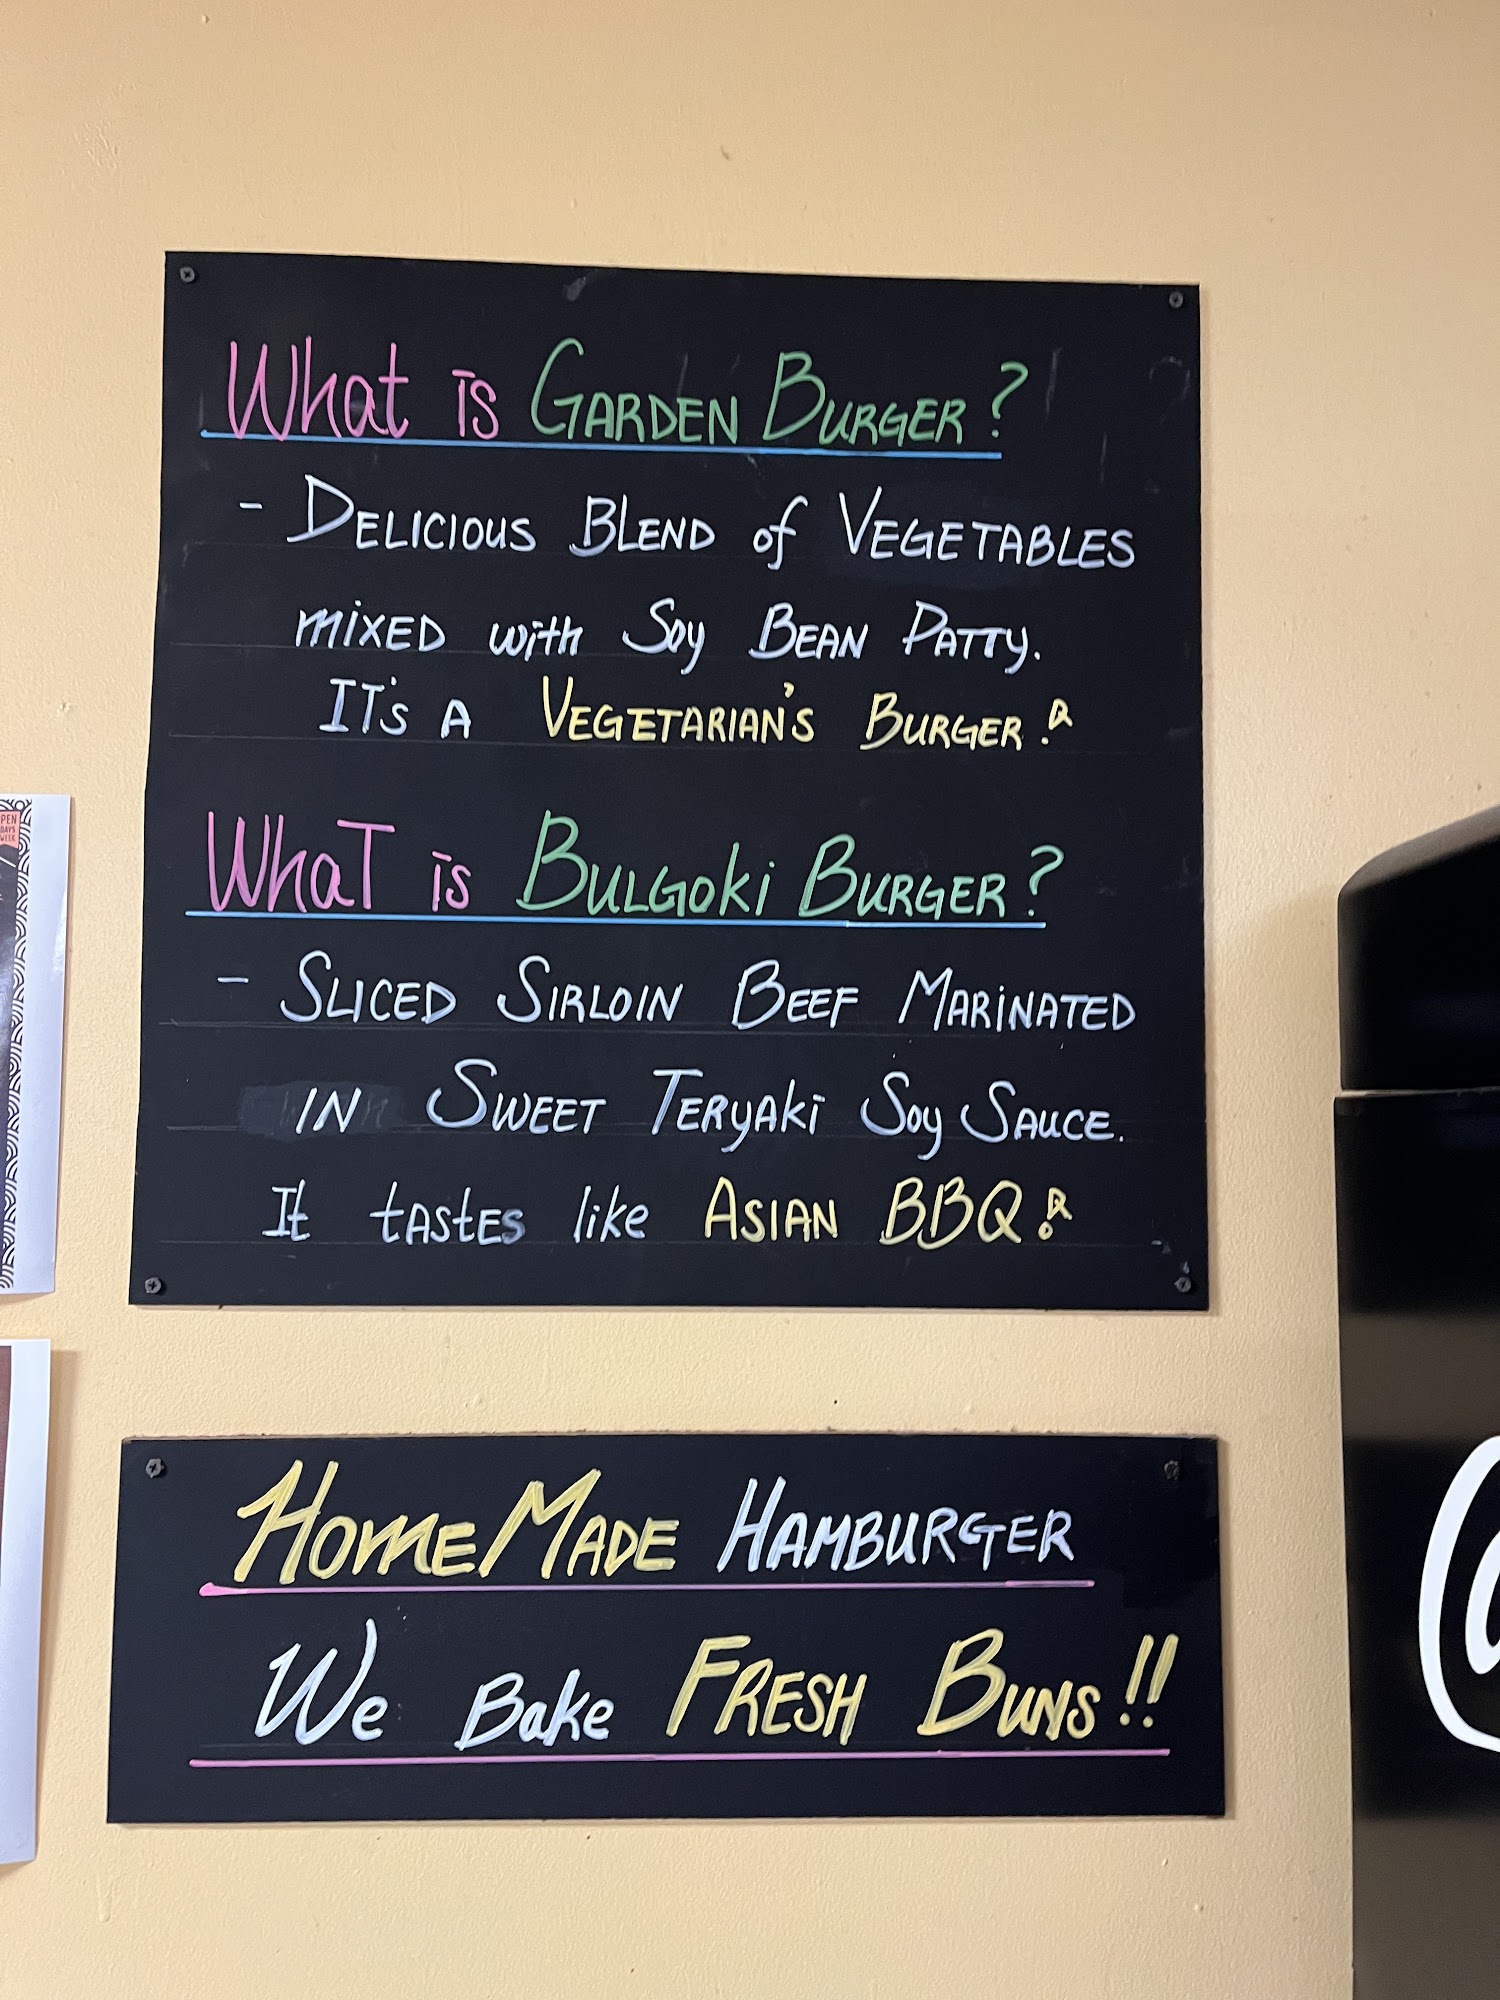 What is Garden Burger?
- Delicious Blend of Vegetables
mixed with Soy Bean Patty.
It's a Vegetarian's Burger!
What is Bulgoki Burger?
- Sliced Sirloin Beef Marinated
in Sweet Teryaki Soy Sauce.
It tastes like Asian BBQ!
HomeMade Hamburger
We Bake Fresh Buns!!
OPEN
DAYS
WEEK